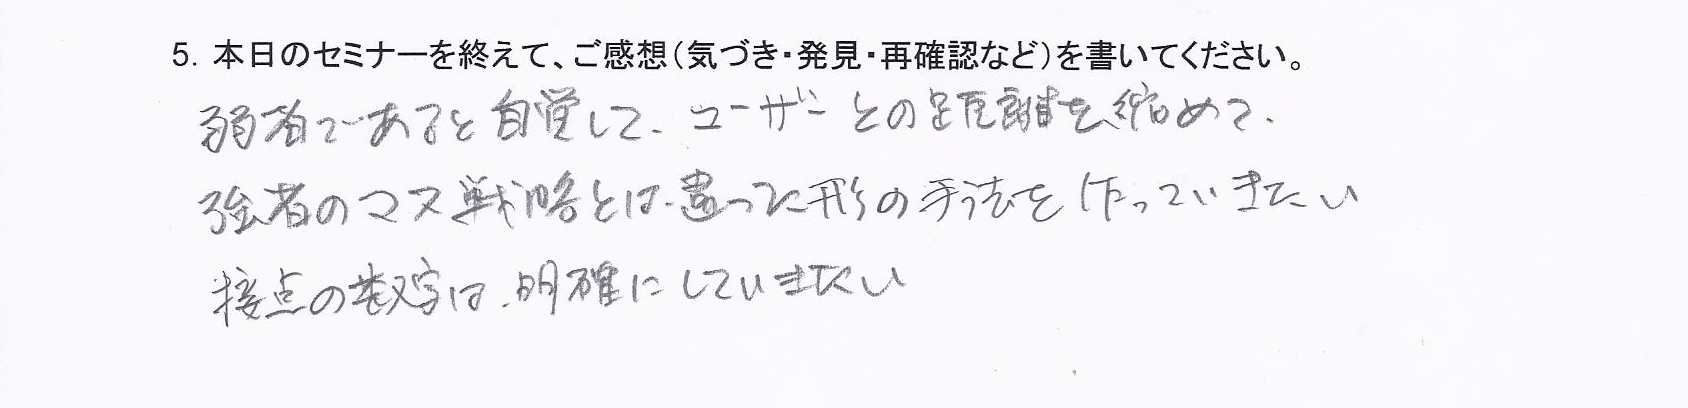 5. 本日のセミナーを終えて、ご感想（気づき・発見・再確認など）を書いてください。
弱者であると自覚して、ユーザーとの距離を縮めて、
強者のマス戦略とは、違った形の手法を作っていきたい
接点の数字は、明確にしていきたい